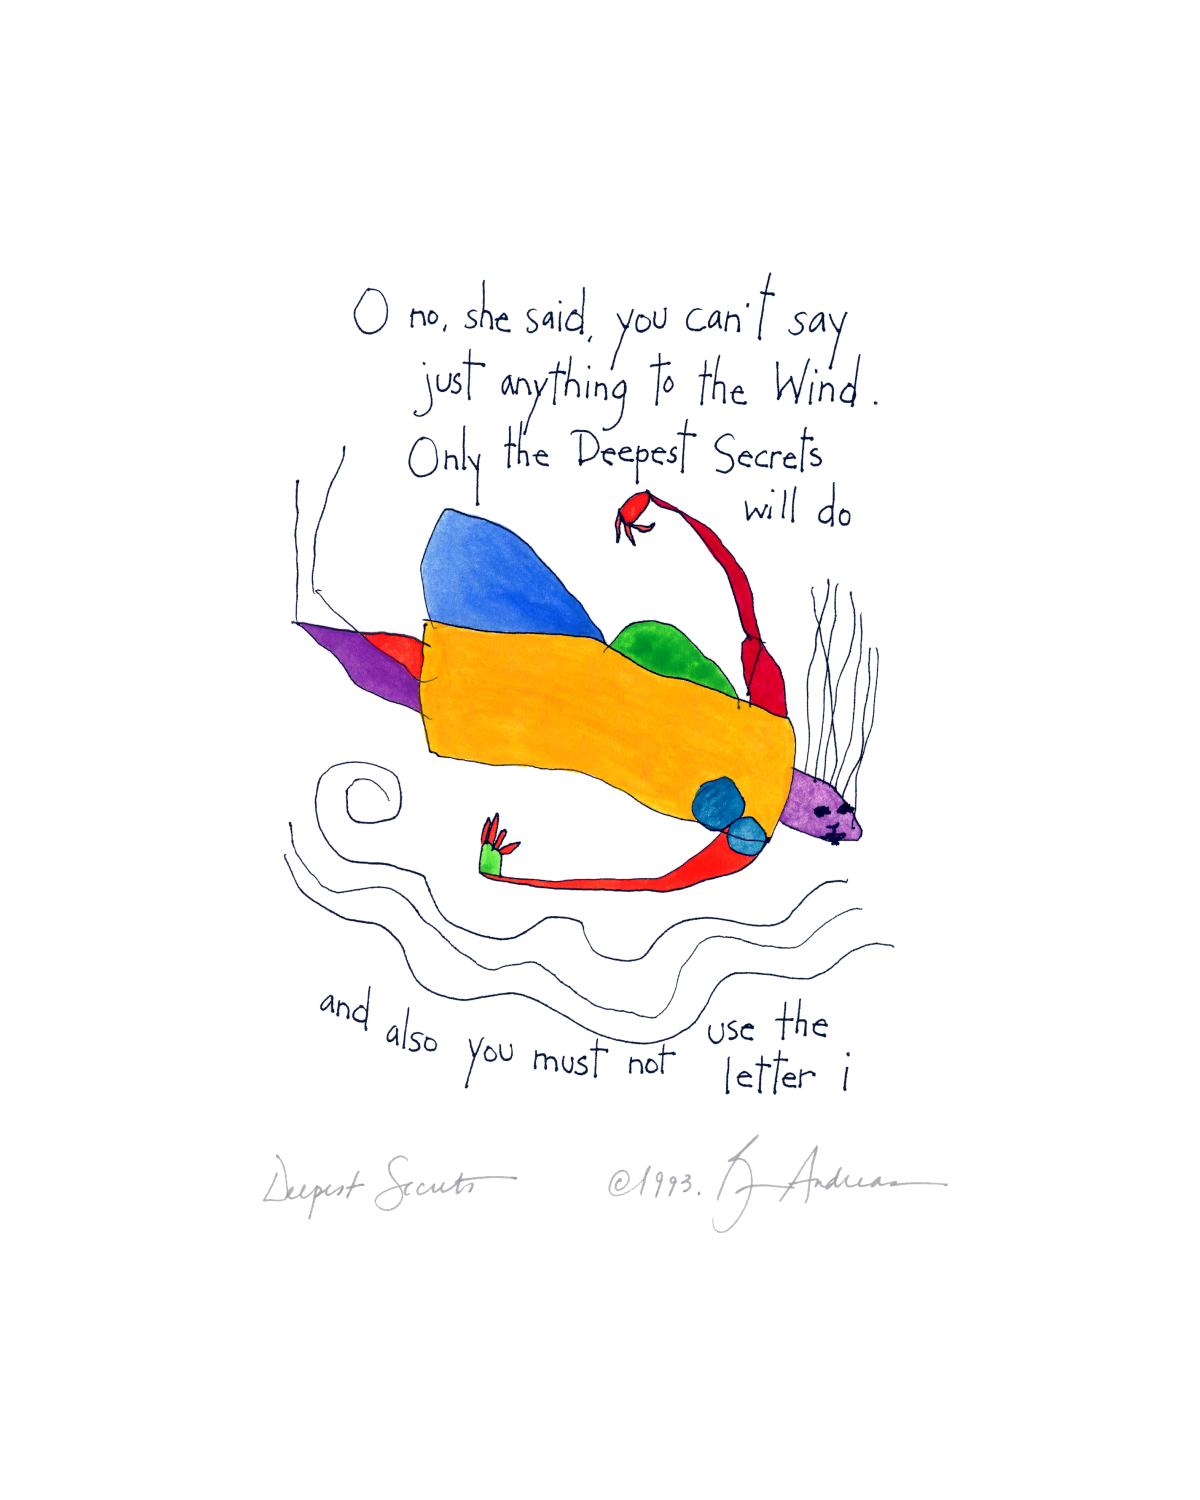 O no, she said, you can't say
just anything to the Wind.
Only the Deepest Secrets
will do
and also you must not use the
letter i
Deepest Secrets ©1993. Andreas